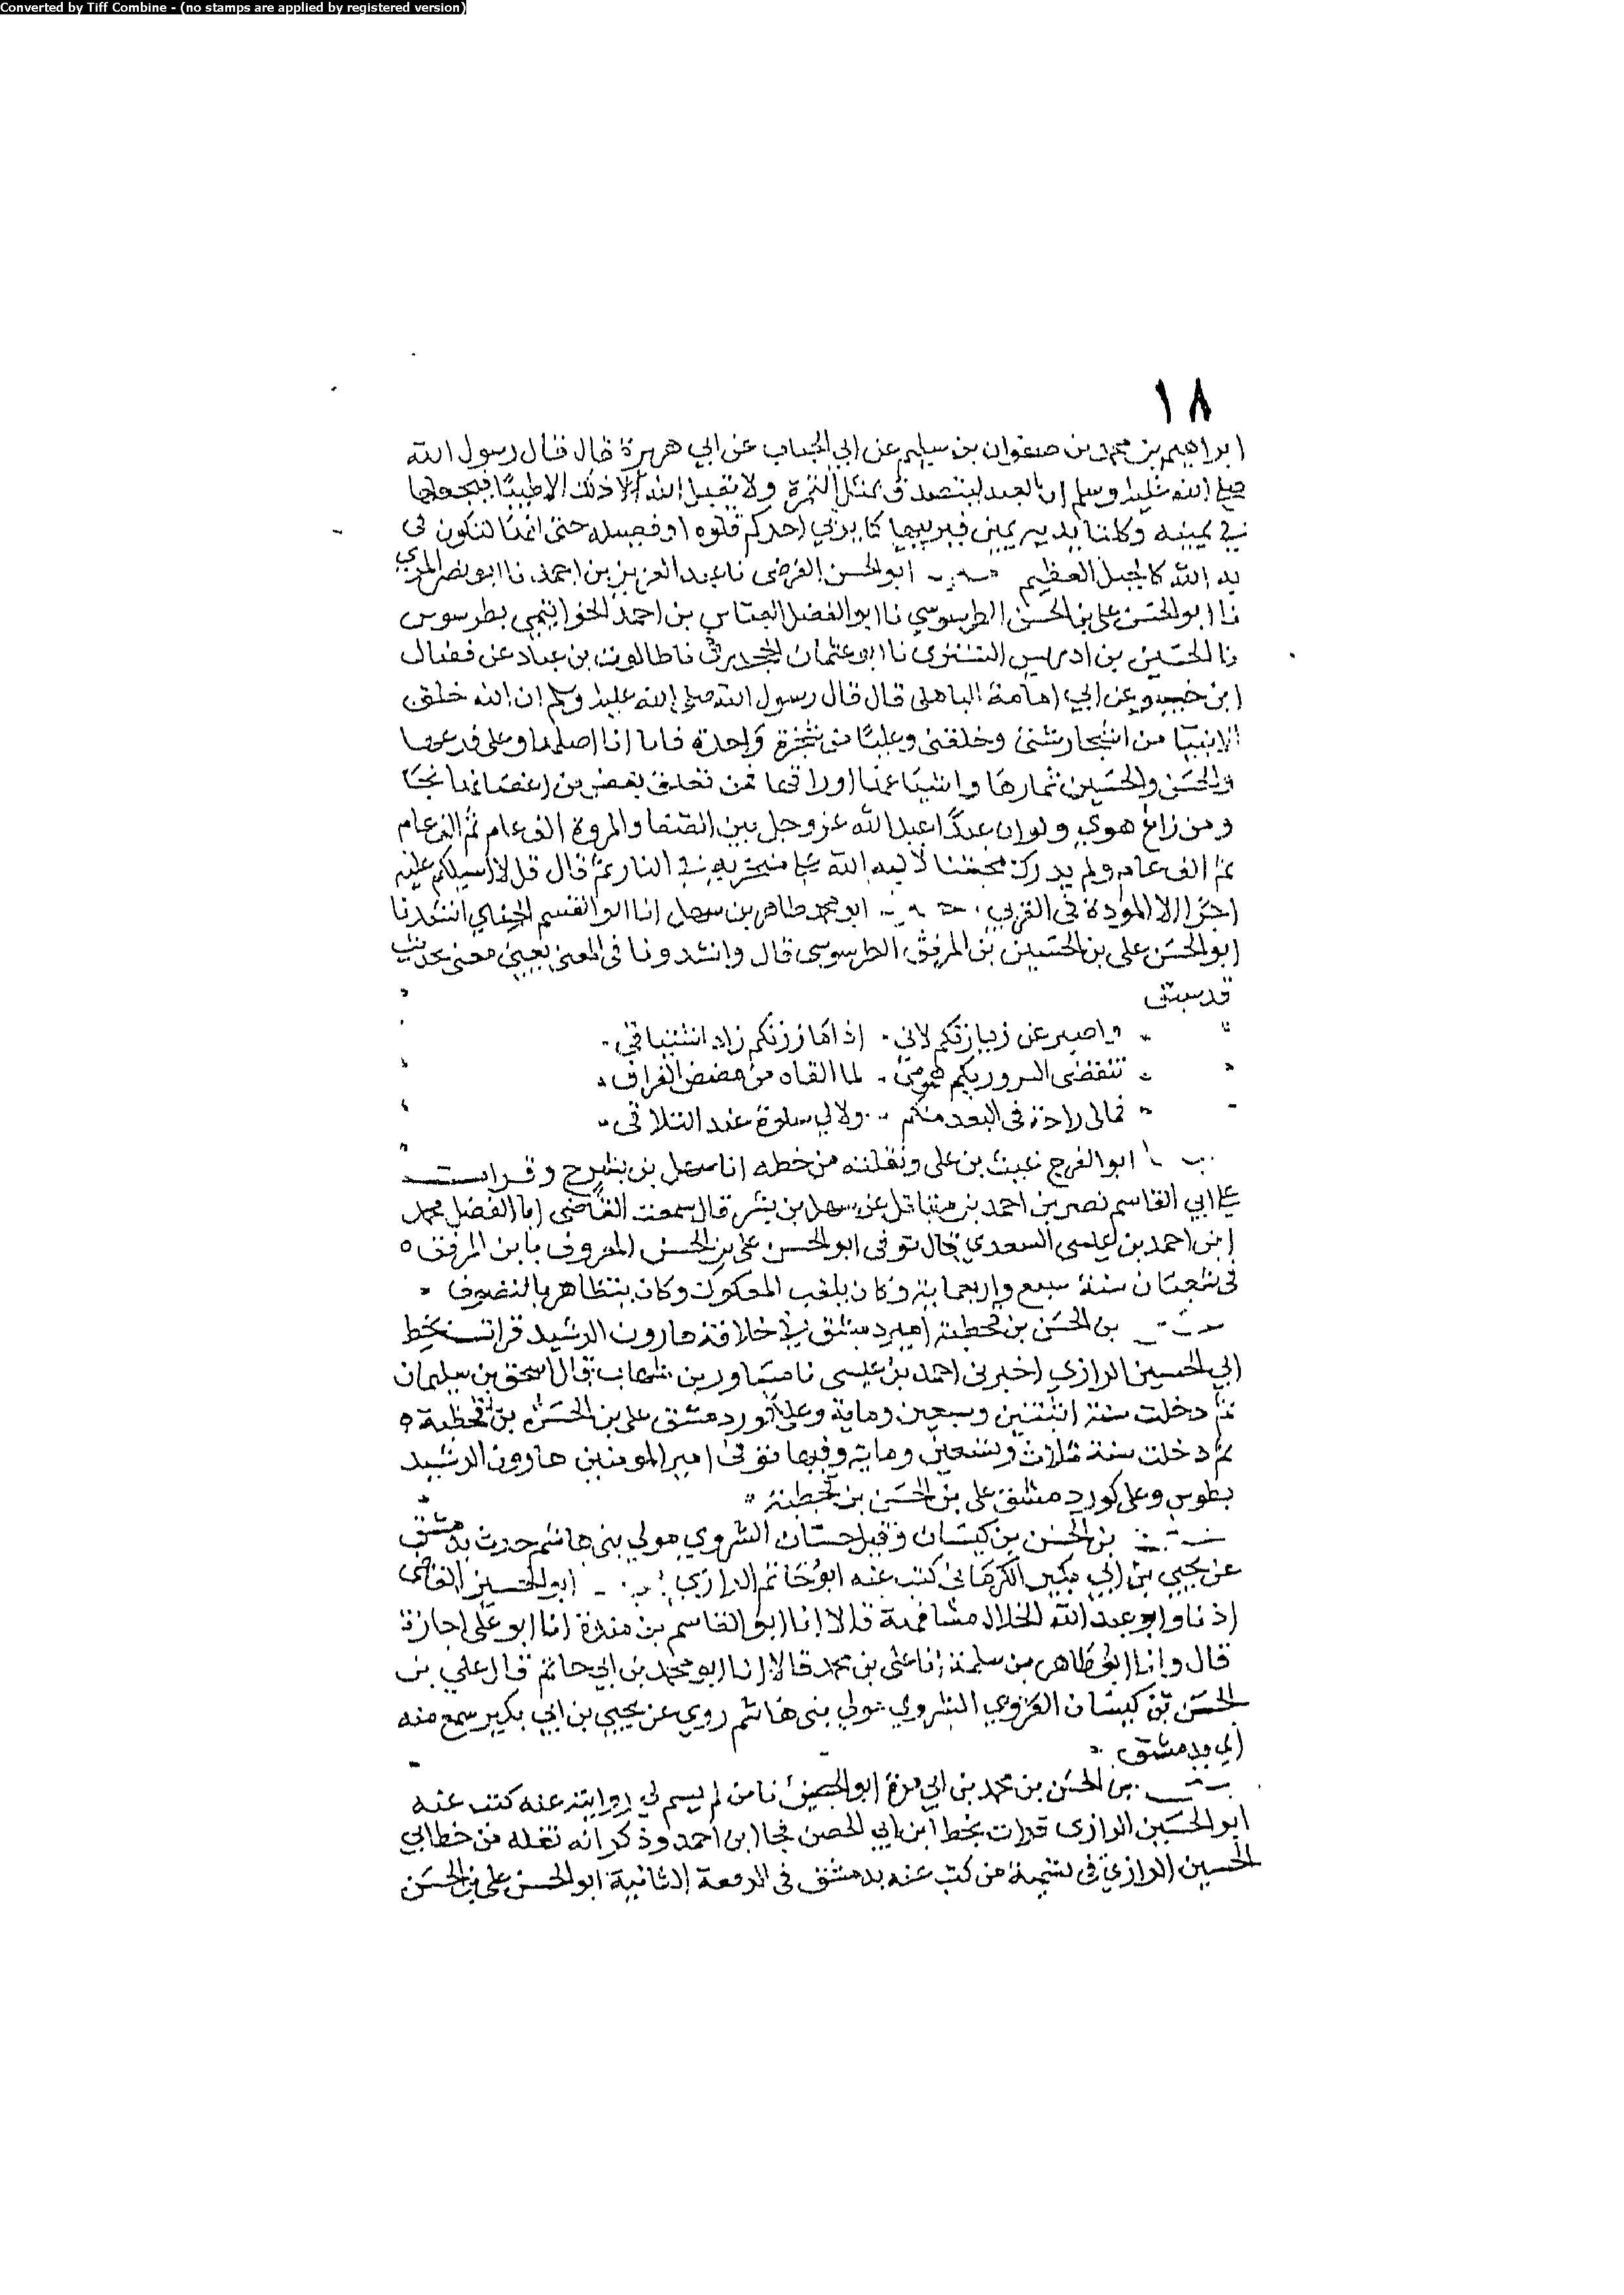 Converted by Tiff Combine - (no stamps are applied by registered version)
١٨
ابراهيم بن محمد بن صفوان بن سليم عن ابي الحباب عن ابي هريرة قال قال رسول الله
صلى الله عليه وسلم ان العبد ليتصدق بمثل التمرة ولا يقبل الله الا ذلك الا طيبًا فيجعلها
في يمينه وكلتا يديه يمين فيربيها كما يربي احدكم فلوه او فصيله حتى انها لتكون في
يد الله كالجبل العظيم ابو الحسن الفرضي نا عبد العزيز بن احمد نا ابو نصر المري
نا ابو الحسن علي بن الحسن الطرسوسي نا ابو الفضل العباس بن احمد الخواتيمي بطرسوس
نا الحسين بن ادريس التستري نا ابو عثمان الجحدري نا طالوت بن عباد عن فضال
ابن جبير عن ابي امامة الباهلي قال قال رسول الله صلى الله عليه وسلم ان الله خلق
الانبيا من اشجار شتى وخلقني وعليًا من شجرة واحدة فانا اصلها وعلي فرعها
والحسن والحسين ثمارها واشياعنا اوراقها فمن تعلق بغصن من اغصانها نجا
ومن زاغ هوي ولو ان عبدًا عبد الله عز وجل بين الصفا والمروة الف عام ثم الف عام
ثم الف عام ولم يدرك محبتنا لاكبه الله على منخريه في النار ثم قال قل لا اسيلكم عليه
اجرًا الا المودة في القربى ابو محمد طاهر بن سهل انا ابو القسم الحناي انشدنا
ابو الحسن علي بن الحسين بن المرفق الطرسوسي قال وانشدونا في المعنى يعني معنى حديث
قد سبق
واصبر عن زيارتكم لاني اذا ما زرتكم زاد اشتياقي
تنقضى السرور بكم همومي لما القاه من مضض الفراق
فمالى راحة في البعد منكم ولا لي سلوة عند التلاقي
ابو الفرج غيث بن علي ونقلته من خطه انا سهل بن بشر ح وقرات
على ابي القاسم نصر بن احمد بن مقاتل عن سهل بن بشر قال سمعت القاضي ابا الفضل محمد
ابن احمد بن عيسى السعدي يقال توفى ابو الحسن علي بن الحسن المعروف بابن المرفق
في شعبان سنة سبع واربعماية وكان يلقب المعكوك وكان يتظاهر بالتصوف
بن الحسن بن قحطبة امير دمشق في خلافة هارون الرشيد قرات بخط
ابي الحسين الرازي اخبرني احمد بن عيسى نا مساور بن شهاب قال اسحق بن سليمان
ثم دخلت سنة اثنتين وسبعين وماية وعلى كور دمشق علي بن الحسن بن قحطبة
ثم دخلت سنة ثلاث وتسعين وماية وفيها توفى امير المومنين هارون الرشيد
بطوس وعلى كور دمشق علي بن الحسن بن قحطبة
بن الحسن بن كيسان وقيل حسان الشروي مولي بني هاشم حدث بدمشق
عن يحيى بن ابي بكير الكرماني كتب عنه ابو حاتم الرازي ابو الحسين القاضي
اذنا وابو عبد الله الخلال مشافهة قالا انا ابو القاسم بن مندة انا ابو علي اجازة
قال وانا ابو طاهر بن سلمة انا علي بن محمد قالا انا ابو محمد بن ابي حاتم قال علي بن
الحسن بن كيسان الشروي مولي بني هاشم روي عن يحيى بن ابي بكير سمع منه
ابي بدمشق
بن الحسن بن محمد بن ابي مرة ابو الحسن نا من لم يسم لي روايته عنه كتب عنه
ابو الحسين الرازي قرات بخط ابن ابي الحصن نجا ابن احمد وذكر انه نقله من خط ابي
الحسين الرازي في تسمية من كتب عنه بدمشق في الدفعة الثانية ابو الحسن علي بن الحسن